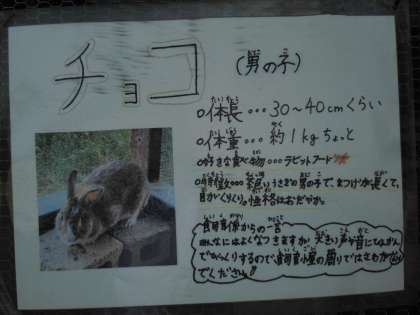 チョコ (男の子)
○体長…30〜40cmくらい
○体重…約1kgちょっと
○好きな食べ物…ラビットフード
○特徴…鼻いうさぎの男の子で、まつげが長くて、
目がくりくり。性格はおだやか。
飼育係からの一言
みんなにはよくなつきますが、大きい声や音にとんかん
でびっくりするので、飼育小屋の周りではさわがない
でください!!